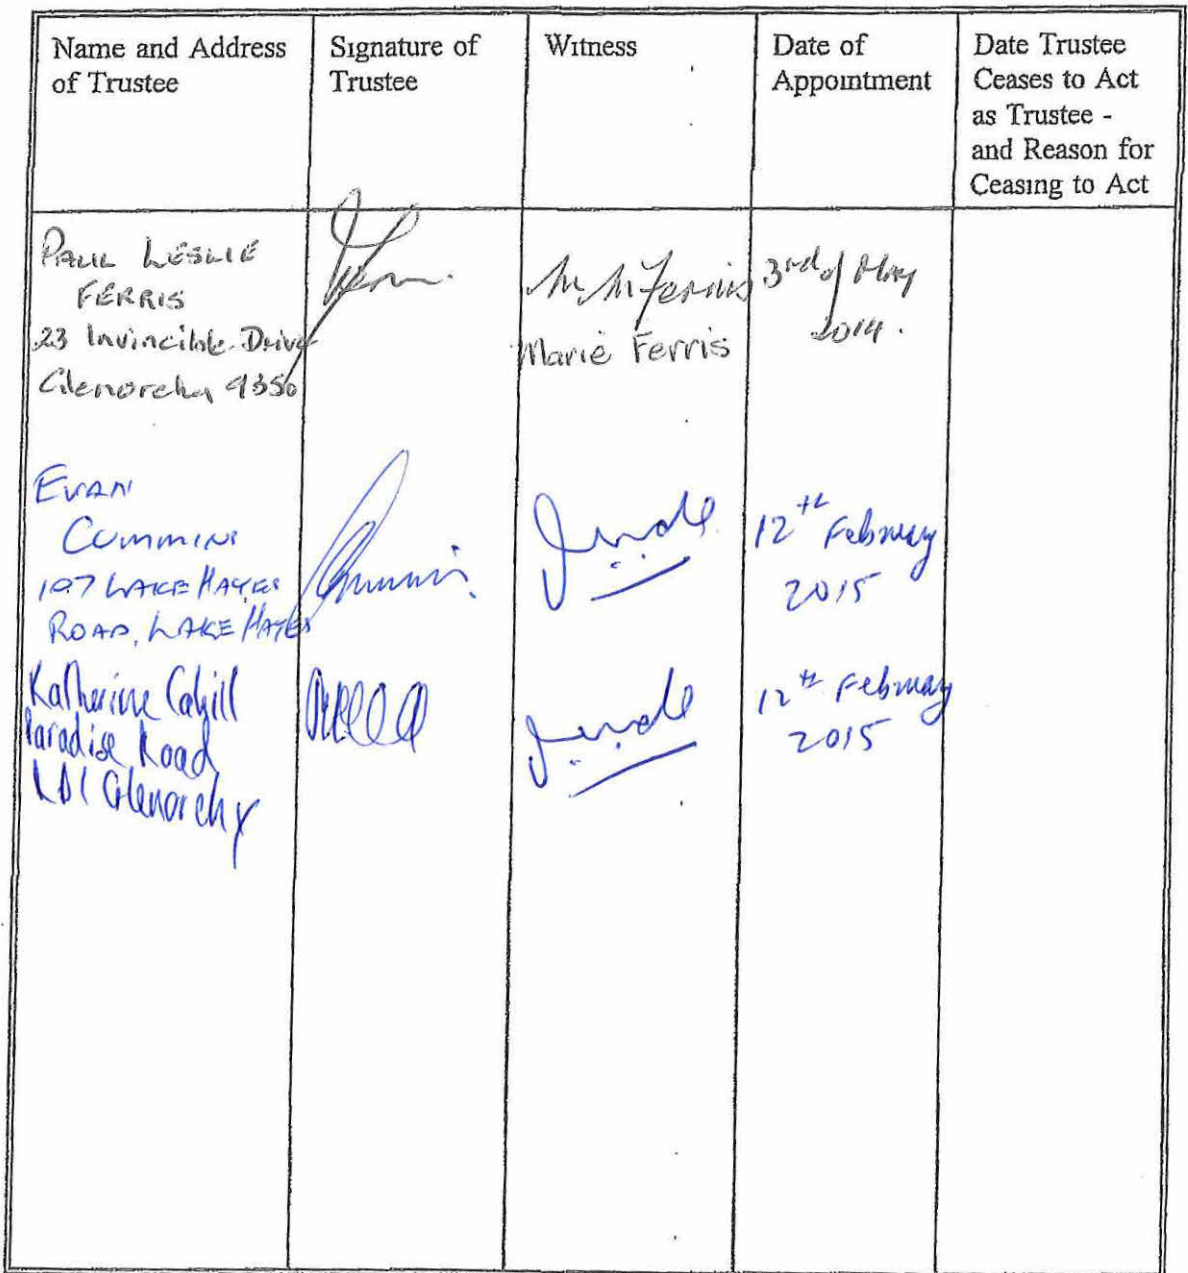 Name and Address
of Trustee
Signature of
Trustee
Witness
Date of
Appointment
Date Trustee
Ceases to Act
as Trustee -
and Reason for
Ceasing to Act
PAUL LESLIE
FERRIS
23 Invincible Drive
Glenorchy 9350
M Ferris
Marie Ferris
3rd of May
2014.
EVAN
CUMMINS
107 LAKE HAYES
ROAD, LAKE HAYES
12th February
2015
Katherine Cahill
Paradise Road
RD1 Glenorchy
12th February
2015